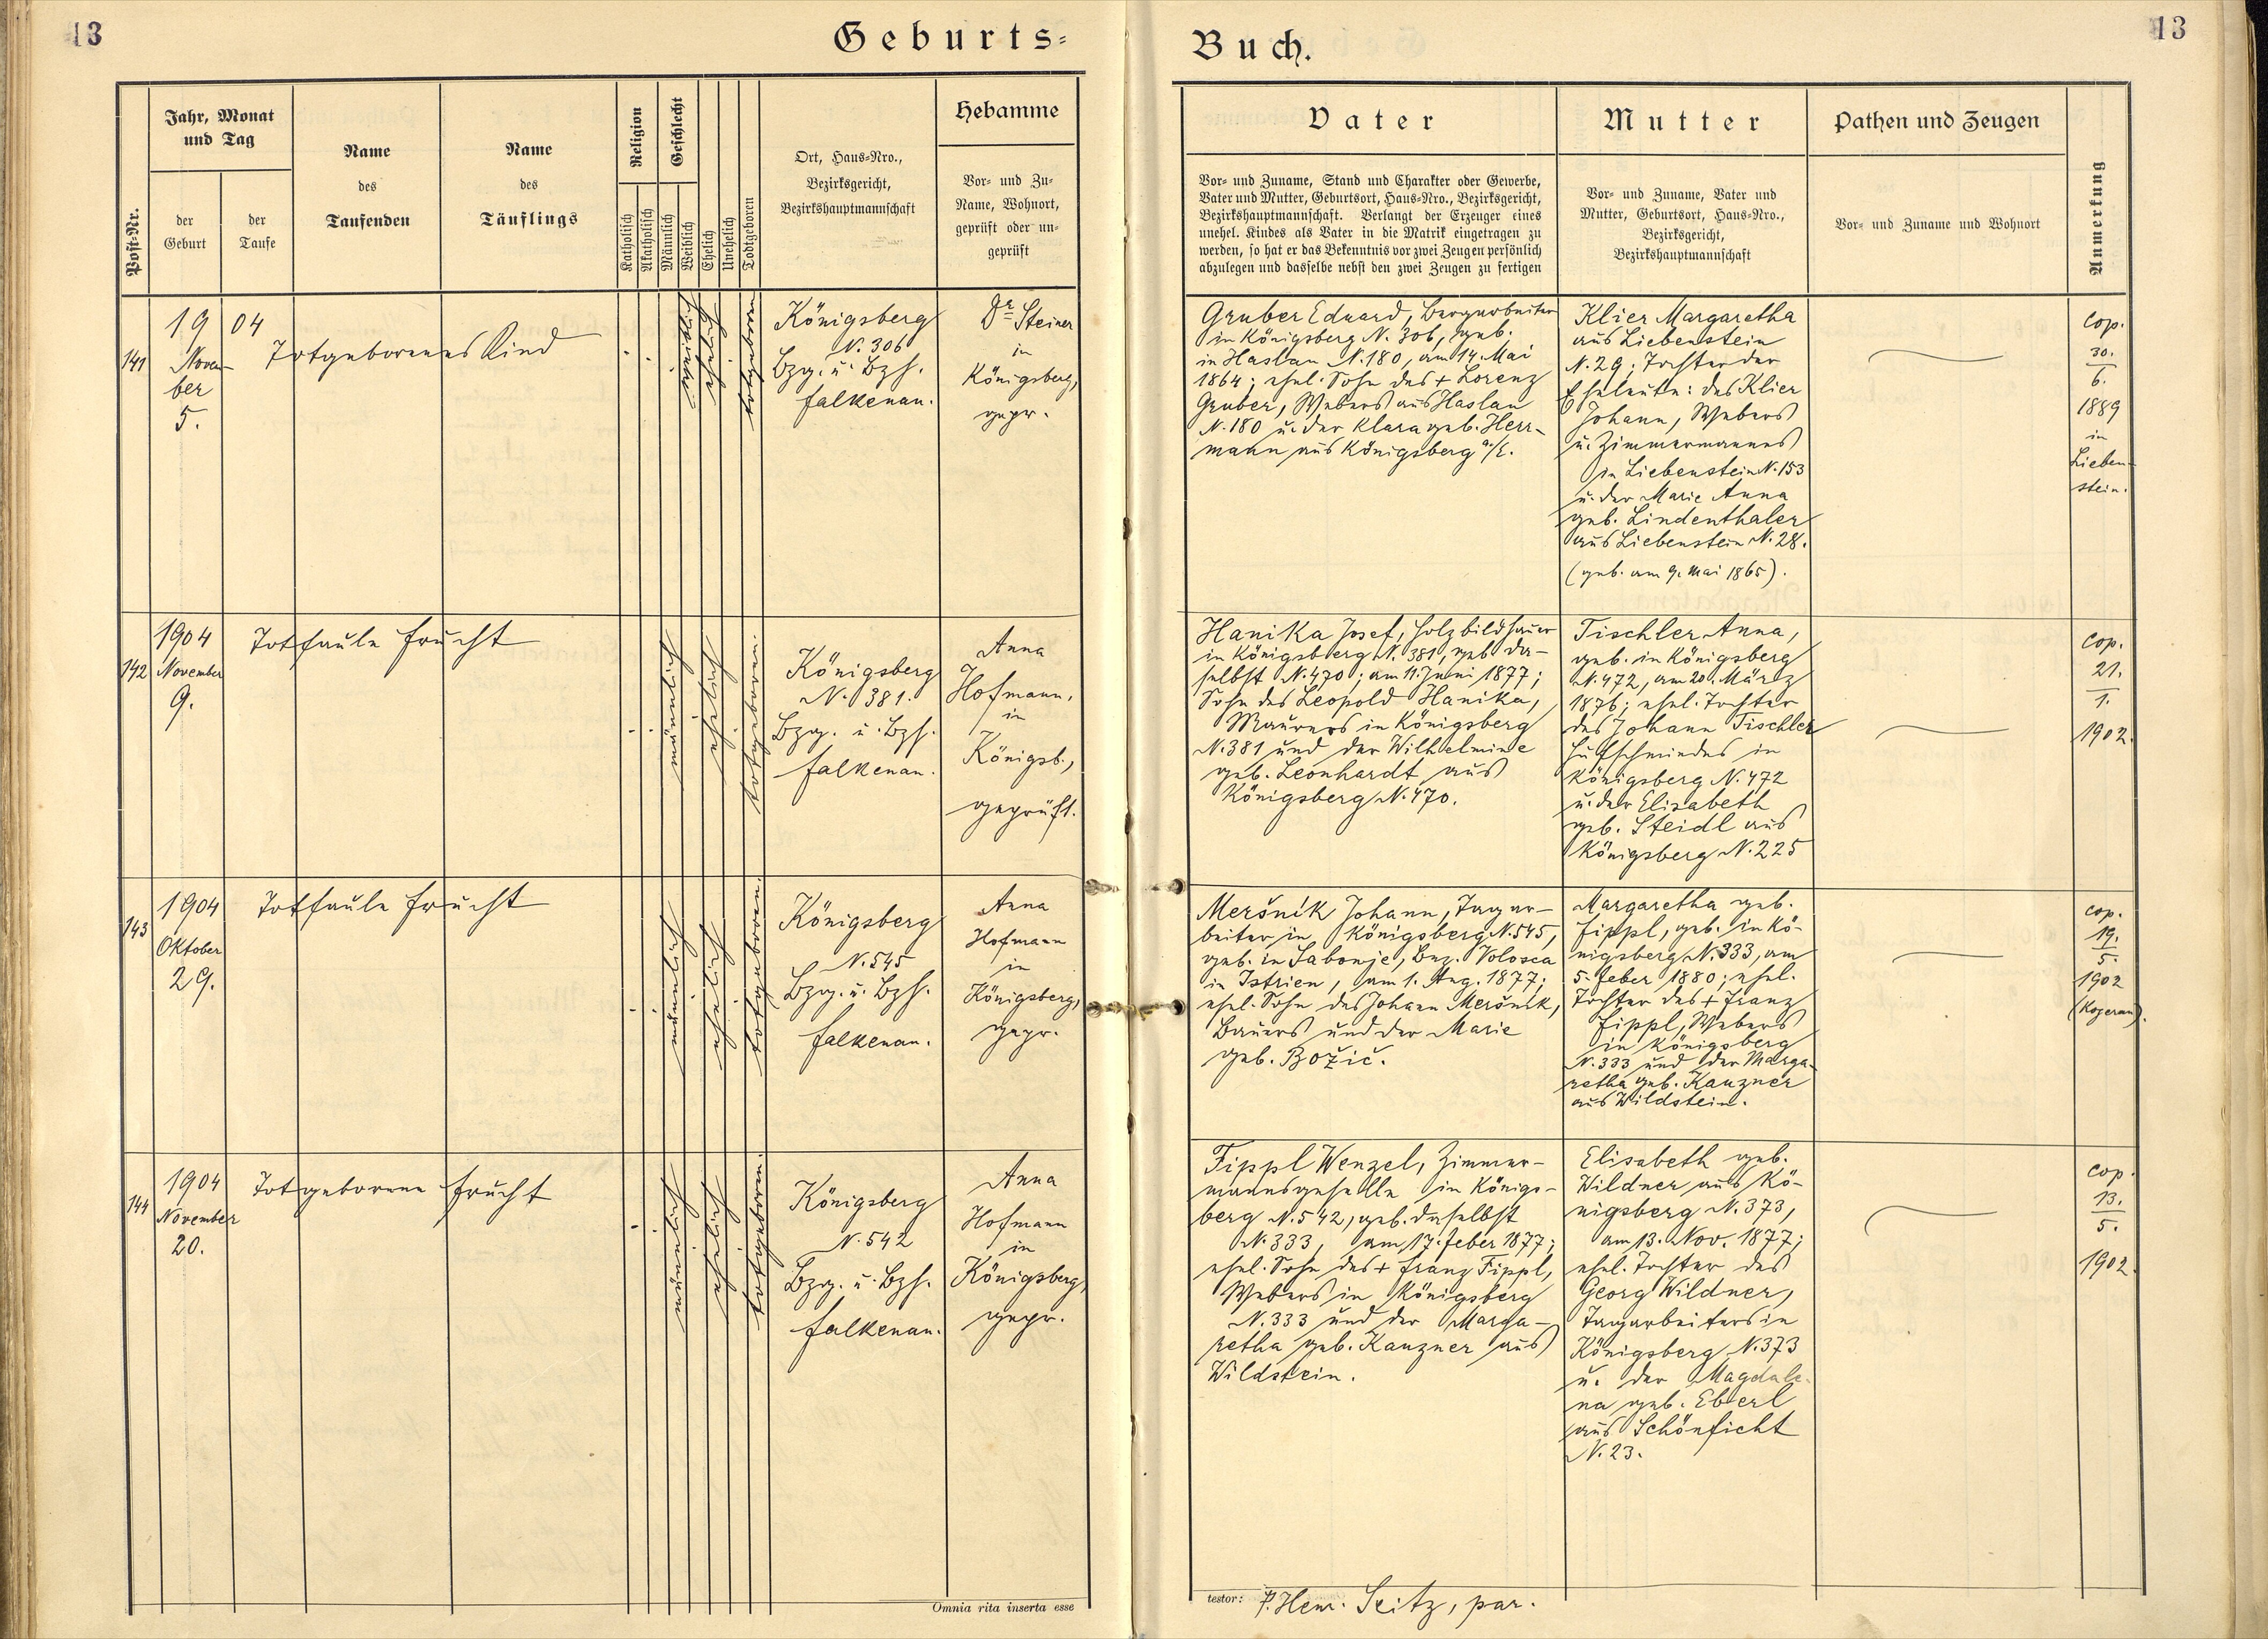 13
Geburts=
Jahr, Monat
und Tag
Post-Nr.
der
Geburt
der
Taufe
Name
des
Taufenden
Name
des
Täuflings
Religion
Geschlecht
Katholisch
Akatholisch
Männlich
Weiblich
Ehelich
Unehelich
Todtgeboren
Ort, Haus=Nro.,
Bezirksgericht,
Bezirkshauptmannschaft
Hebamme
Vor= und Zu=
Name, Wohnort,
geprüft oder un=
geprüft
141
19 04
Novem-
ber
5.
Totgeborenes Kind
totgeboren
Königsberg
N. 306
Bzg. u. Bzh.
Falkenau.
Dr Steiner
in
Königsberg,
gepr.
142
1904
November
9.
Totfaule Frucht
männlich
ehelich
totgeboren.
Königsberg
N. 381.
Bzg. u. Bzh.
Falkenau.
Anna
Hofmann,
in
Königsb.,
geprüft.
143
1904
Oktober
29.
Totfaule Frucht
männlich
ehelich
totgeboren.
Königsberg
N. 545
Bzg. u. Bzh.
Falkenau.
Anna
Hofmann
in
Königsberg,
gepr.
144
1904
November
20.
Totgeborene Frucht
männlich
ehelich
totgeboren.
Königsberg
N. 542
Bzg. u. Bzh.
Falkenau.
Anna
Hofmann
in
Königsberg,
gepr.
Omnia rita inserta esse
Buch.
13
Vater
Vor= und Zuname, Stand und Charakter oder Gewerbe,
Vater und Mutter, Geburtsort, Haus=Nro., Bezirksgericht,
Bezirkshauptmannschaft. Verlangt der Erzeuger eines
unehel. Kindes als Vater in die Matrik eingetragen zu
werden, so hat er das Bekenntnis vor zwei Zeugen persönlich
abzulegen und dasselbe nebst den zwei Zeugen zu fertigen
Mutter
Vor= und Zuname, Vater und
Mutter, Geburtsort, Haus=Nro.,
Bezirksgericht,
Bezirkshauptmannschaft
Pathen und Zeugen
Vor= und Zuname und Wohnort
Anmerkung
Gruber Eduard, Bergarbeiter
in Königsberg N. 306, geb.
in Haslau N. 180, am 14. Mai
1864; ehel. Sohn des + Lorenz
Gruber, Webers aus Haslau
N. 180 u. der Klara geb. Herr-
mann aus Königsberg a/E.
Klier Margaretha
aus Liebenstein
N. 29; Tochter der
Eheleute: des Klier
Johann, Webers
u. Zimmermannes
in Liebenstein N. 153
u. der Marie Anna
geb. Lindenthaler
aus Liebenstein N. 28.
(geb. am 9. Mai 1865).
cop.
30.
6.
1889
in
Lieben-
stein.
Hanika Josef, Holzbildhauer
in Königsberg N. 381, geb. da-
selbst N. 470; am 11. Juni 1877;
Sohn des Leopold Hanika,
Maurers in Königsberg
N. 381 und der Wilhelmine
geb. Leonhardt aus
Königsberg N. 470.
Tischler Anna,
geb. in Königsberg
N. 472, am 20. März
1876; ehel. Tochter
des Johann Tischler
Hufschmiedes in
Königsberg N. 472
u. der Elisabeth
geb. Steidl aus
Königsberg N. 225
cop.
21.
1.
1902.
Meršnik Johann, Tagar-
beiter in Königsberg N. 545,
geb. in Sabonje, Bez. Volosca
in Istrien, am 1. Aug. 1877;
ehel. Sohn des Johann Meršnik,
Bauers und der Marie
geb. Božič.
Margaretha geb.
Fippl, geb. in Kö-
nigsberg N. 333, am
5. Feber 1880; ehel.
Tochter des + Franz
Fippl, Webers
in Königsberg
N. 333 und der Marga-
retha geb. Kanzner
aus Wildstein.
cop.
19.
5.
1902
(Kogerau).
Fippl Wenzel, Zimmer-
mannsgeselle in Königs-
berg N. 542, geb. daselbst
N. 333, am 17. Feber 1877;
ehel. Sohn des + Franz Fippl,
Webers in Königsberg
N. 333 und der Marga-
retha geb. Kanzner aus
Wildstein.
Elisabeth geb.
Wildner aus Kö-
nigsberg N. 373,
am 13. Nov. 1877;
ehel. Tochter des
Georg Wildner,
Tagarbeiters in
Königsberg N. 373
u. der Magdale-
na geb. Eberl
aus Schönficht
N. 23.
cop.
13.
5.
1902.
testor: P. Henr. Seitz, par.